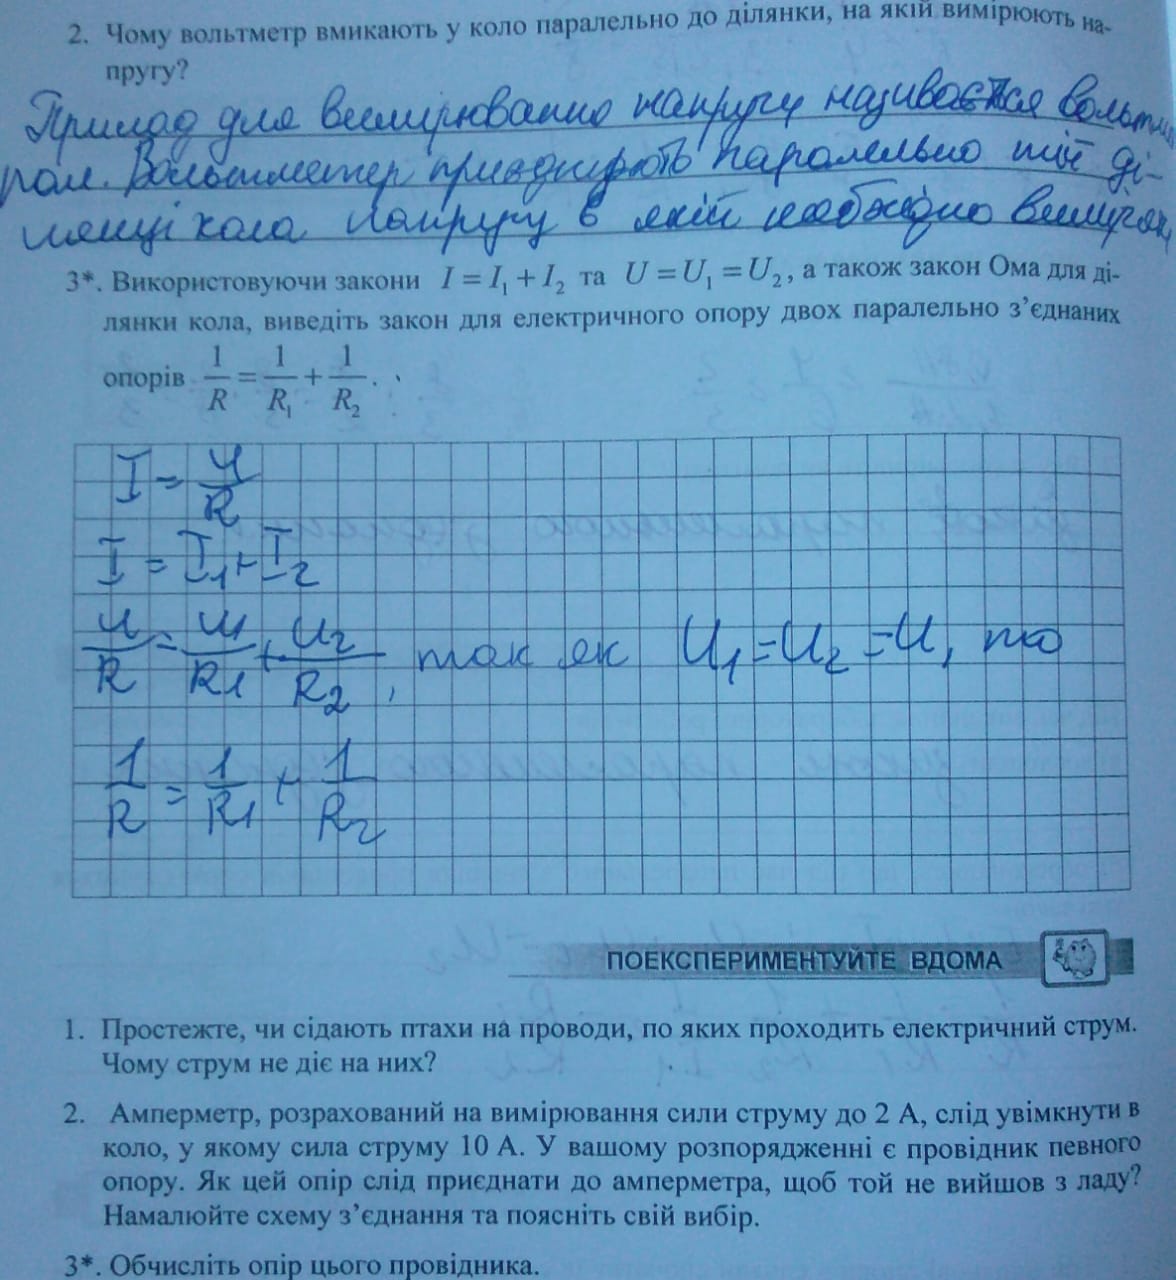 2. Чому вольтметр вмикають у коло паралельно до ділянки, на якій вимірюють на-
пругу?
Прилад для вимірювання напруги називається вольтмет
ром. Вольтметер приєднують паралельно тій ді-
лянці кола напругу в якій необхідно
3*. Використовуючи закони I = I₁ + I₂ та U = U₁ = U₂, а також закон Ома для ді-
лянки кола, виведіть закон для електричного опору двох паралельно з’єднаних
опорів 1/R = 1/R₁ + 1/R₂.
I = U/R
I = I₁ + I₂
U/R = U₁/R₁ + U₂/R₂, так як U₁ = U₂ = U, то
1/R = 1/R₁ + 1/R₂
ПОЕКСПЕРИМЕНТУЙТЕ ВДОМА
1. Простежте, чи сідають птахи на проводи, по яких проходить електричний струм.
Чому струм не діє на них?
2. Амперметр, розрахований на вимірювання сили струму до 2 А, слід увімкнути в
коло, у якому сила струму 10 А. У вашому розпорядженні є провідник певного
опору. Як цей опір слід приєднати до амперметра, щоб той не вийшов з ладу?
Намалюйте схему з’єднання та поясніть свій вибір.
3*. Обчисліть опір цього провідника.